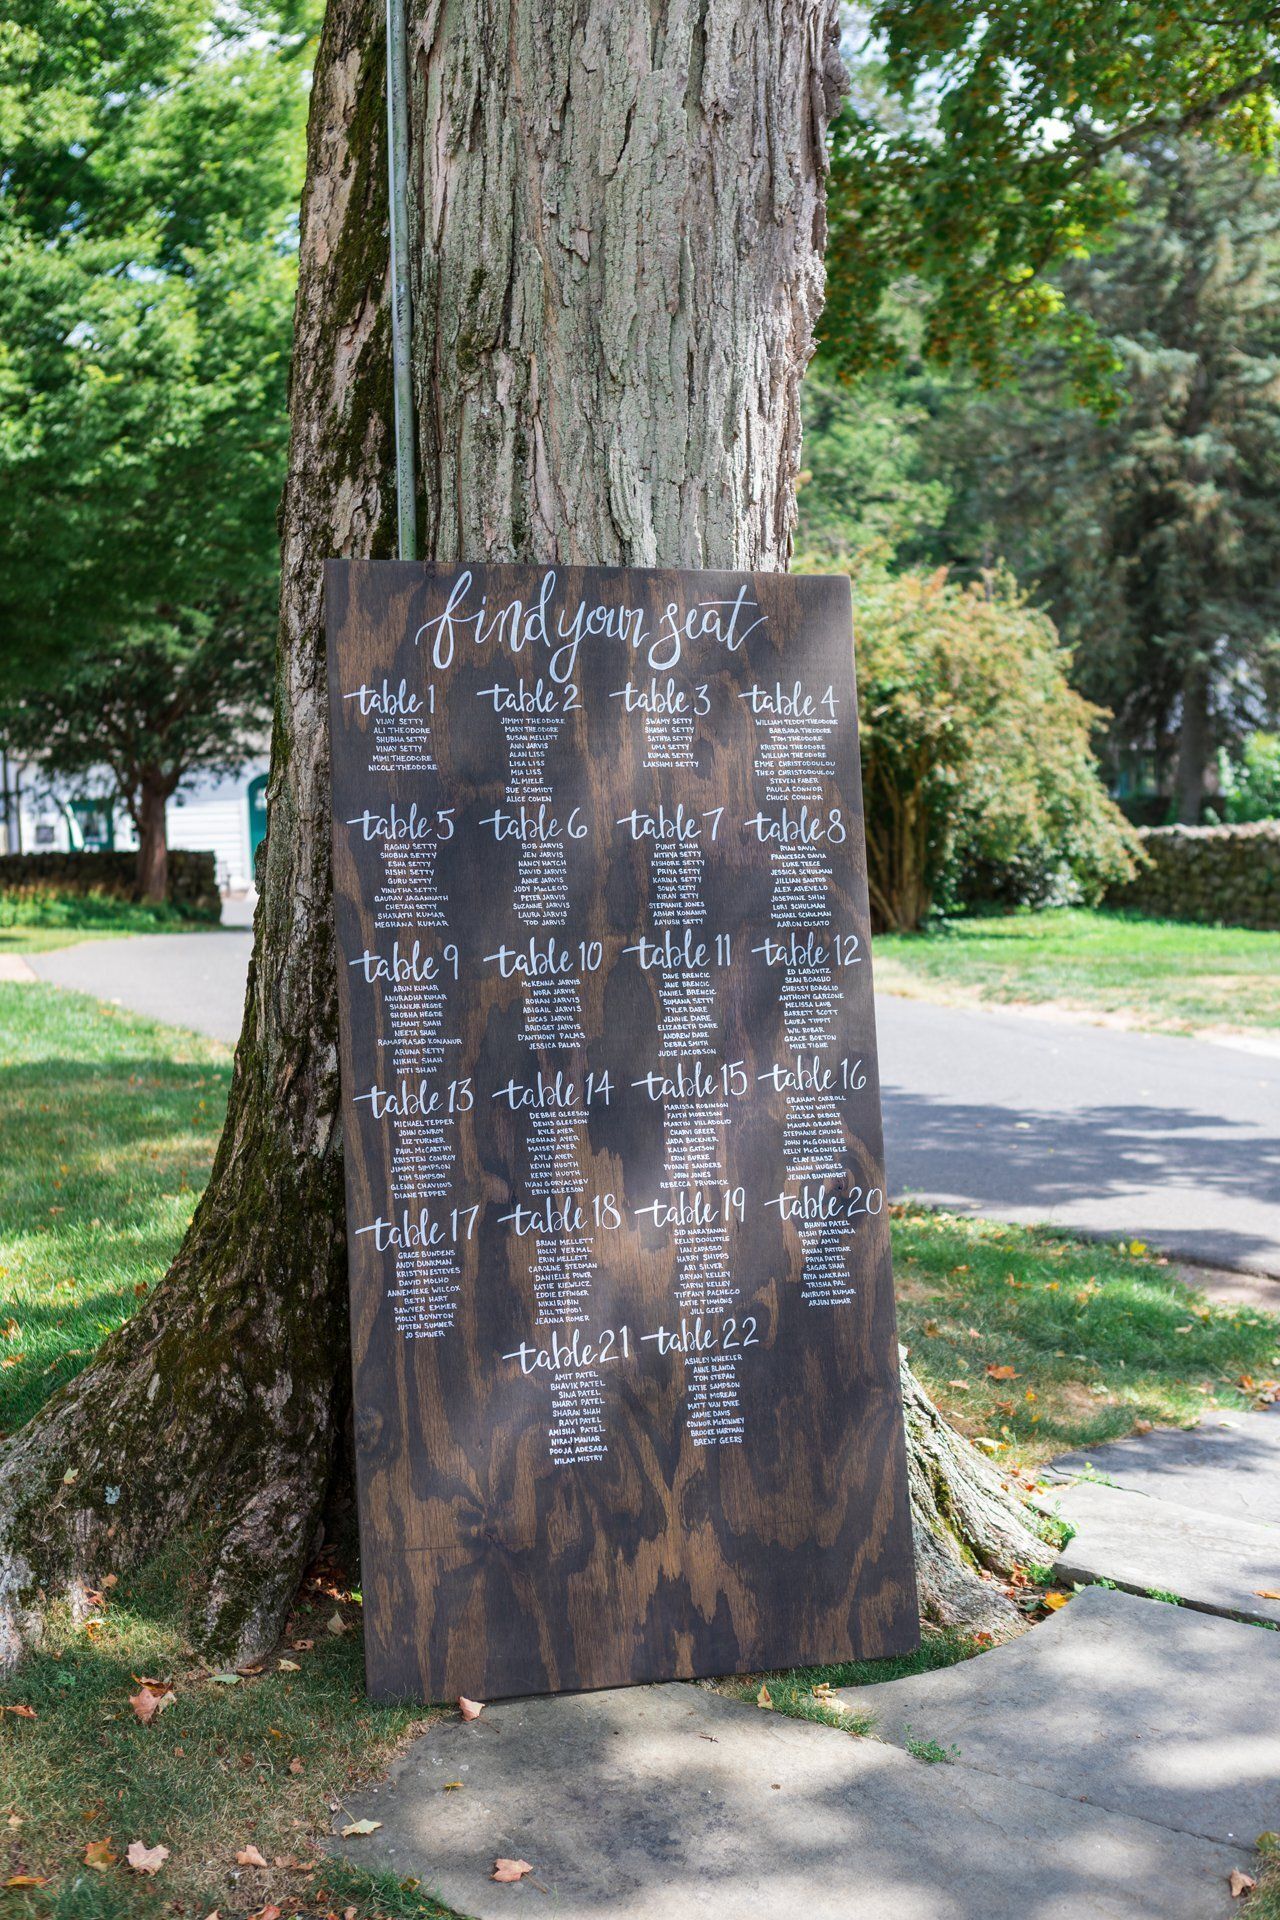 find your seat
table 1
VIJAY SETTY
ALI THEODORE
SHUBHA SETTY
VINAY SETTY
MIMI THEODORE
NICOLE THEODORE
table 2
JIMMY THEODORE
MARY THEODORE
SUSAN MELLETT
ANN JARVIS
ALAN LISS
LISA LISS
MIA LISS
AL MIELE
SUE SCHMIDT
ALICE COHEN
table 3
SWAMY SETTY
SHASHI SETTY
SATHYA SETTY
UMA SETTY
KUMAR SETTY
LAKSHMI SETTY
table 4
WILLIAM TEDDY THEODORE
BARBARA THEODORE
TOM THEODORE
KRISTEN THEODORE
WILLIAM THEODORE
EMME CHRISTODOULOU
THEO CHRISTODOULOU
STEVEN FABER
PAULA CONNOR
CHUCK CONNOR
table 5
RAGHU SETTY
SHOBHA SETTY
ESHA SETTY
RISHI SETTY
GURU SETTY
VINUTHA SETTY
GAURAV JAGANNATH
CHETAN SETTY
SHARATH KUMAR
MEGHANA KUMAR
table 6
BOB JARVIS
JEN JARVIS
NANCY HATCH
DAVID JARVIS
ANNE JARVIS
JODY MACLEOD
PETER JARVIS
SUZANNE JARVIS
LAURA JARVIS
TOD JARVIS
table 7
PUNIT SHAH
NITHYA SETTY
KISHORE SETTY
PRIYA SETTY
KARINA SETTY
SONIA SETTY
KIRAN SETTY
STEPHANIE JONES
ABHAY KONANUR
AAYUSH SETTY
table 8
RYAN DAVIA
FRANCESCA DAVIA
LUKE TEECE
JESSICA SCHULMAN
JILLIAN SANTOS
ALEX AREVELO
JOSEPHINE SHIN
LORI SCHULMAN
MICHAEL SCHULMAN
AARON CUSATO
table 9
ARUN KUMAR
ANURADHA KUMAR
SHANKAR HEGDE
SHOBHA HEGDE
HEMANT SHAH
NEETA SHAH
RAMAPRASAD KONANUR
ARUNA SETTY
NIKHIL SHAH
NITI SHAH
table 10
MCKENNA JARVIS
NORA JARVIS
ROHAN JARVIS
ABIGAIL JARVIS
LUCAS JARVIS
BRIDGET JARVIS
D'ANTHONY PALMS
JESSICA PALMS
table 11
DAVE BRENCIC
JANE BRENCIC
DANIEL BRENCIC
SUMANA SETTY
TYLER DARE
JENNIE DARE
ELIZABETH DARE
ANDREW DARE
DEBRA SMITH
JUDIE JACOBSON
table 12
ED LABOVITZ
SEAN BOAGLIO
CHRISSY BOAGLIO
ANTHONY GARZONE
MELISSA LAUB
BARRETT SCOTT
LAURA TIPPIT
WIL ROBAR
GRACE BORTON
MIKE TIGHE
table 13
MICHAEL TEPPER
JOHN CONROY
LIZ TURNER
PAUL MCCARTHY
KRISTEN CONROY
JIMMY SIMPSON
KIM SIMPSON
GLENN CHAVIOUS
DIANE TEPPER
table 14
DEBBIE GLEESON
DENIS GLEESON
KYLE AYER
MEGHAN AYER
MAISEY AYER
AYLA AYER
KEVIN HUOTH
KERRY HUOTH
IVAN GORYACHEV
ERIN GLEESON
table 15
MARISSA ROBINSON
FAITH MORRISON
MARTIN VILLADOLID
CHARVI GREER
JADA BUCKNER
KALIO GATSON
ERIN BURKE
YVONNE SANDERS
JOHN JONES
REBECCA PRUDNICK
table 16
GRAHAM CARROLL
TARYN WHITE
CHELSEA DEBOLT
MAURA GRAHAM
STEPHANIE CHUNG
JOHN MCGONIGLE
KELLY MCGONIGLE
CLAY
HANNAH HUGHES
JENNA BINKHORST
table 17
GRACE BUNDENS
ANDY DUNKMAN
KRISTYN ESTEVES
DAVID MOLHO
ANNEMIEKE WILCOX
BETH HART
SAWYER EMMER
MOLLY BOYNTON
JUSTEN SUMNER
JO SUMNER
table 18
BRIAN MELLETT
HOLLY YERMAL
ERIN MELLETT
CAROLINE STEDMAN
DANIELLE POWER
KATIE KIEWLICZ
EDDIE EFFINGER
NIKKI RUBIN
BILL TRIPODI
JEANNA ROMER
table 19
SID NARAYANAN
KELLY DOOLITTLE
IAN CAPASSO
HARRY SHIPPS
ARI SILVER
BRYAN KELLEY
TARYN KELLEY
TIFFANY PACHECO
KATIE TIMMONS
JILL GEER
table 20
BHAVIN PATEL
RISHI PALRIWALA
PARI AMIN
PAVAN PATIDAR
PRIYA PATEL
SAGAR SHAH
RIYA NAKRANI
TRISHA PAL
ANIRUDH KUMAR
ARJUN KUMAR
table 21
AMIT PATEL
BHAVIK PATEL
SINA PATEL
BHARVI PATEL
SHARAN SHAH
RAVI PATEL
AMISHA PATEL
NIRAJ MANIAR
POOJA ADESARA
NILAM MISTRY
table 22
ASHLEY WHEELER
ANNE BLANDA
TOM STEPAN
KATIE SAMPSON
JON MOREAU
MATT VAN DYKE
JAMIE DAVIS
CONNOR MCKINNEY
BROOKE HARTMAN
BRENT GEERS